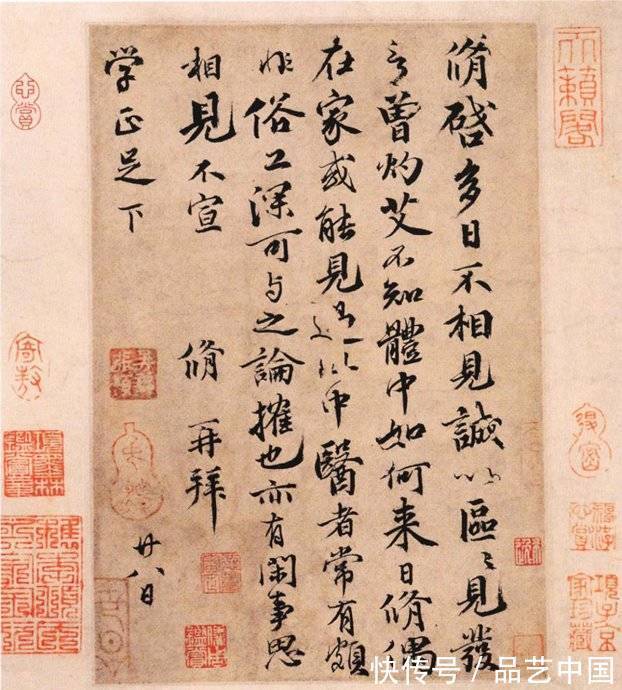 天籟閣
脩啓多日不相見誠以區〻見發
言曾灼艾不知體中如何来日脩偶
在家或能見過此中醫者常有頗
非俗工深可与之論搉也亦有閑事思
相見不宣 脩再拜
廿八日
学正足下
項子京家珍藏
快传号 / 品艺中国